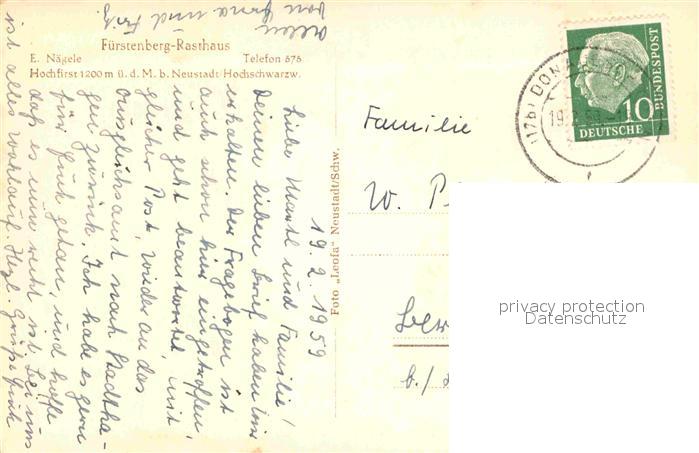 Fürstenberg-Rasthaus
E. Nägele Telefon 575
Hochfirst 1200 m ü. d. M. b. Neustadt Hochschwarzw.
19. 2. 1959
Liebe Muntl und Familie!
Deinen lieben Brief haben wir
erhalten. Der Fragebogen ist
auch schon hier eingetroffen,
und geht beantwortet mit
gleicher Post, wieder an das
Ausgleichsamt nach Stadtha-
gen zurück. Ich habe es gern
für Euch getan, und hoffe
daß es nun recht ist. Bei uns
ist alles wohlauf. Herzl. Grüße Euch
allen
von und
Foto „Leofa“ Neustadt/Schw.
Familie
W.
b./
(17b) DONAUESCH
19.2.59
10
DEUTSCHE
BUNDESPOST
privacy protection
Datenschutz